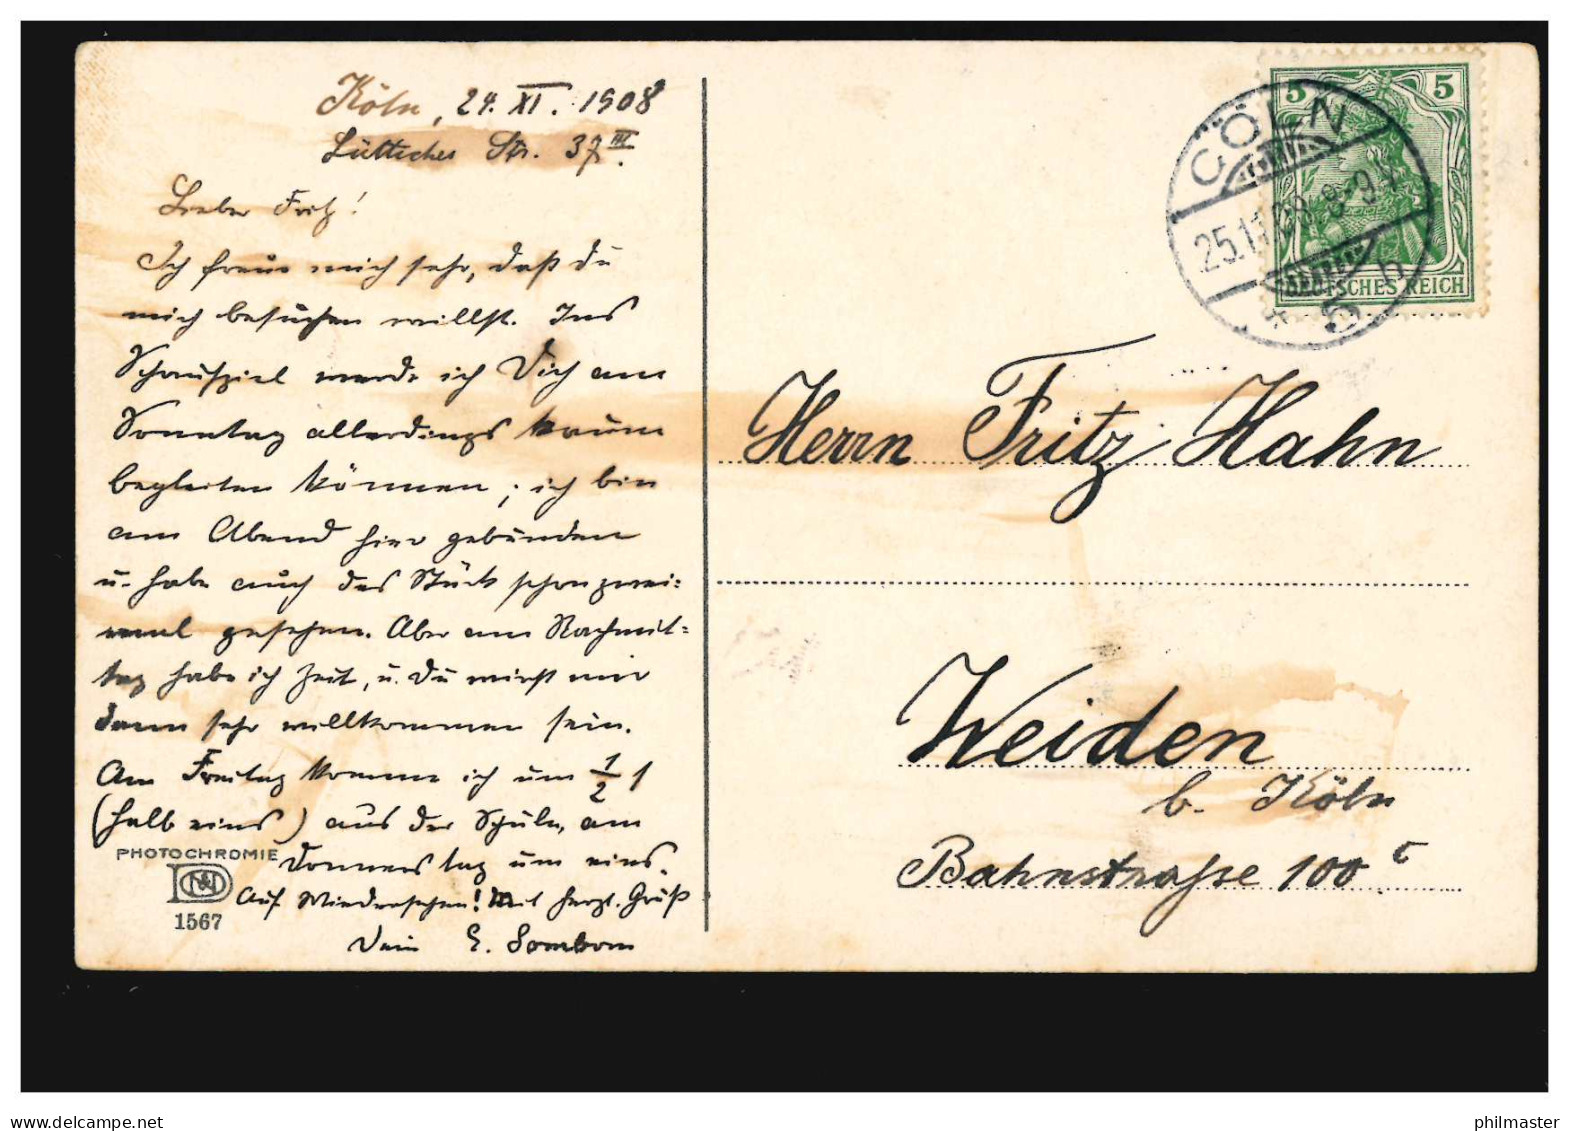 Köln, 24. XI. 1908
Lütticher Str. 37 III.
Lieber Fritz!
Ich freue mich sehr, daß du
mich besuchen willst. Ins
Schauspiel werde ich Dich am
Sonntag allerdings kaum
begleiten können; ich bin
am Abend hier gebunden
u. habe auch das Stück schon zwei=
mal gesehen. Aber am Nachmit=
tag habe ich Zeit, u. du wirst mir
dann sehr willkommen sein.
Am Freitag komme ich um 1/2 1
(halb eins) aus der Schule, am
Donnerstag um eins.
Auf Wiedersehen! Mit herzl. Gruß
Dein E. Sombom
PHOTOCHROMIE
N&D
1567
5 5
DEUTSCHES REICH
CÖLN
25.11.08 8-9V
* 5 h
Herrn Fritz Hahn
Weiden
b. Köln
Bahnstrasse 100 c
delcampe.net
philmaster